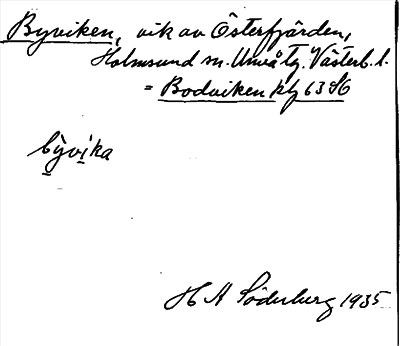 Byviken, vik av Österfjärden,
Holmsund sn. Umeå tg. Västerb. l.
= Bodviken kbl 63 S6
bỳvika
H A Söderberg 1935